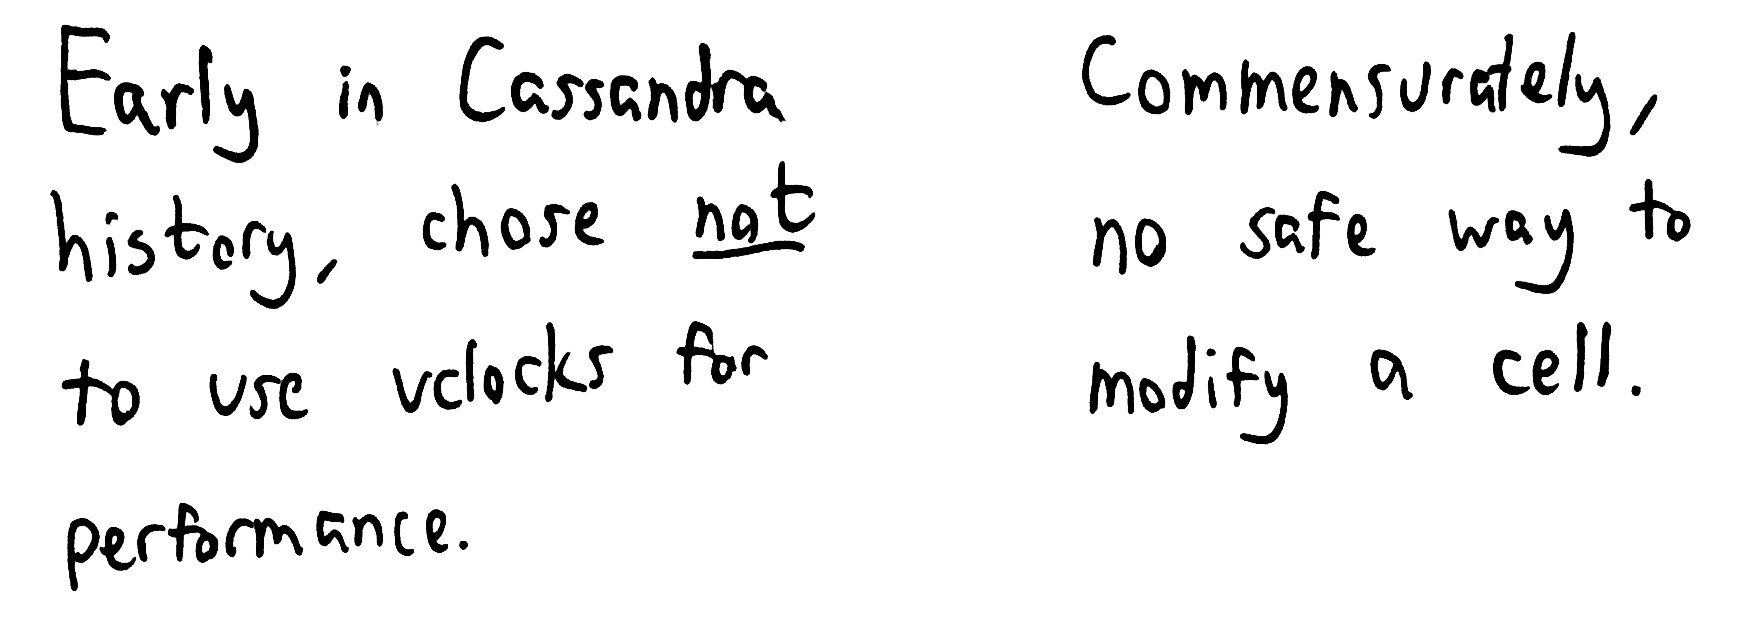 Early in Cassandra
history, chose not
to use vclocks for
performance.
Commensurately,
no safe way to
modify a cell.